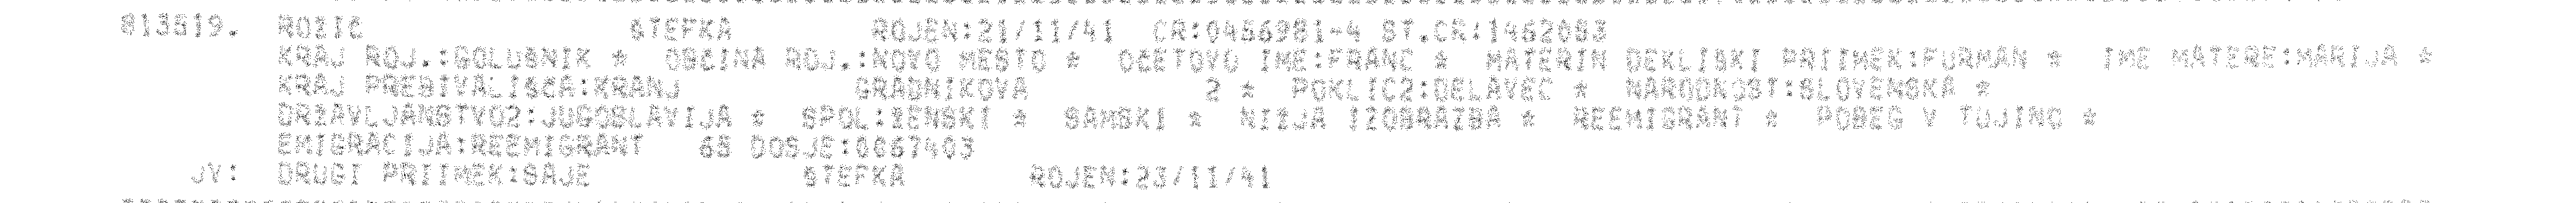 813519. ROZIC STEFKA ROJEN:21/11/41 CR:0456981-4 ST.CR:1462083
KRAJ ROJ.:GOLUSNIK * OBCINA ROJ.:NOVO MESTO * OCETOVO IME:FRANC * MATERIN DEKLISKI PRIIMEK:FURMAN * IME MATERE:MARIJA *
KRAJ PREBIVALISCA:KRANJ GRADNIKOVA 2 * POKLIC2:DELAVEC * NARODNOST:SLOVENSKA *
DRZAVLJANSTVO2:JUGOSLAVIJA * SPOL:ZENSKI * SAMSKI * NIZJA IZOBRAZBA * REEMIGRANT * POBEG V TUJINO *
EMIGRACIJA:REEMIGRANT 65 DOSJE:0067403
JV: DRUGI PRIIMEK:SAJE STEFKA ROJEN:23/11/41